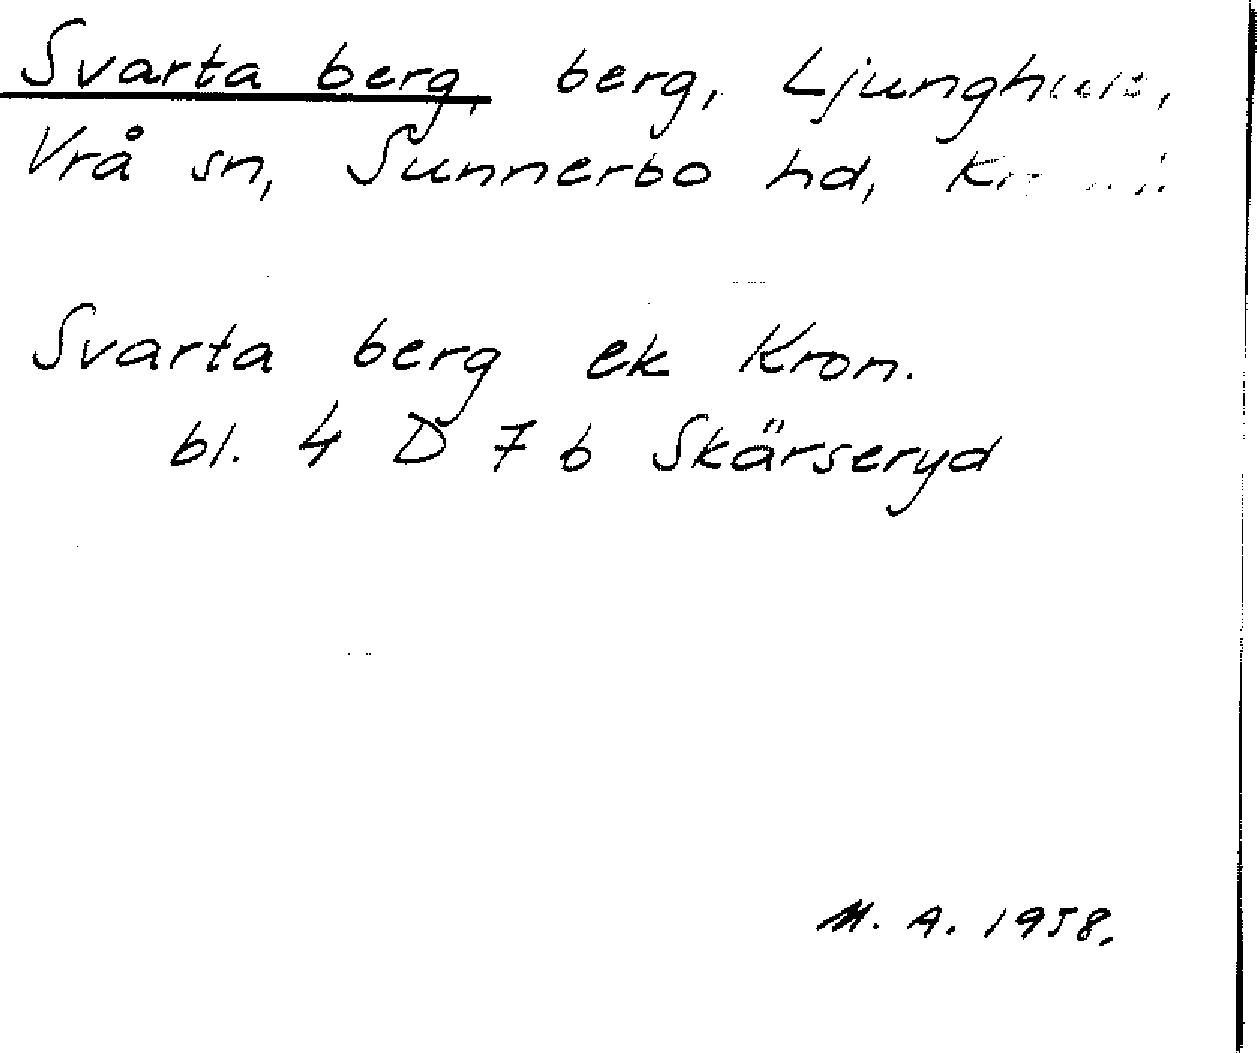 Svarta berg, berg, Ljunghult,
Vrå sn, Sunnerbo hd,
Svarta berg ek Kron.
bl. 4 D 7 b Skärseryd
M. A. 1958.